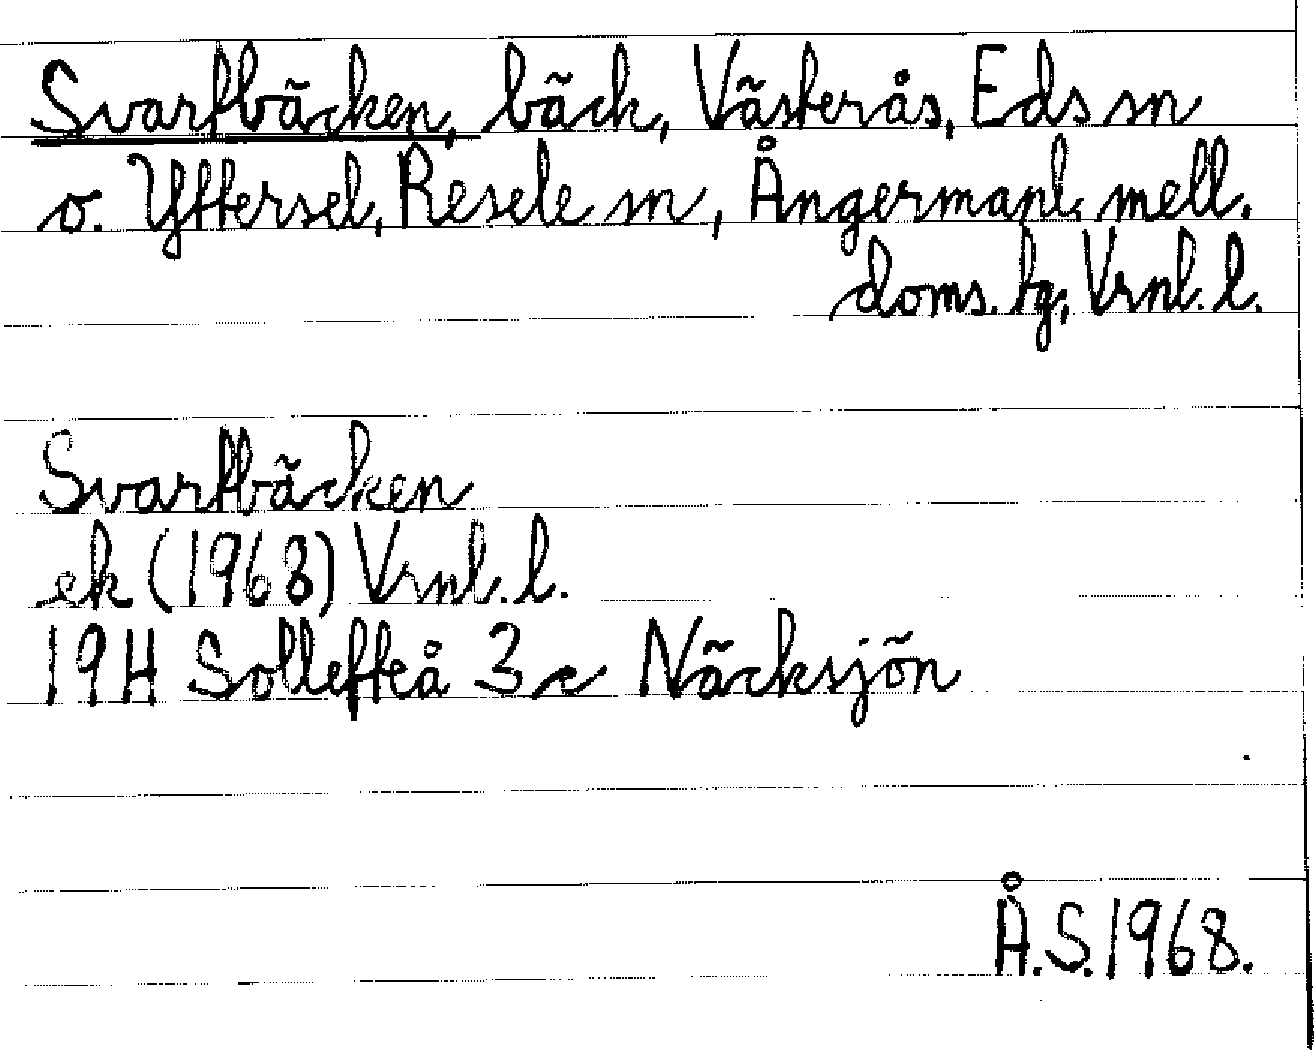 Svartbäcken, bäck, Västerås, Eds sn
o. Yttersel, Resele sn, Ångermanl. mell.
doms. tg, Vrnl. l.
Svartbäcken
ek (1968) Vrnl. l.
19H Sollefteå 3c Näcksjön
Å.S. 1968.